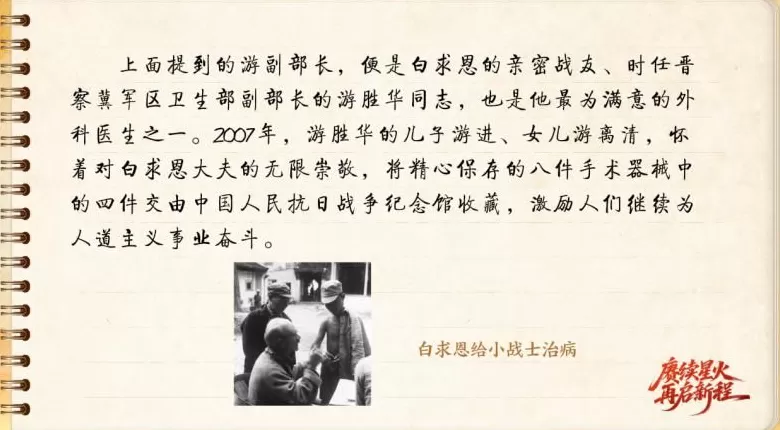 上面提到的游副部长，便是白求恩的亲密战友、时任晋
察冀军区卫生部副部长的游胜华同志，也是他最为满意的外
科医生之一。2007年，游胜华的儿子游进、女儿游离清，怀
着对白求恩大夫的无限崇敬，将精心保存的八件手术器械中
的四件交由中国人民抗日战争纪念馆收藏，激励人们继续为
人道主义事业奋斗。
白求恩给小战士治病
赓续星火
再启新程